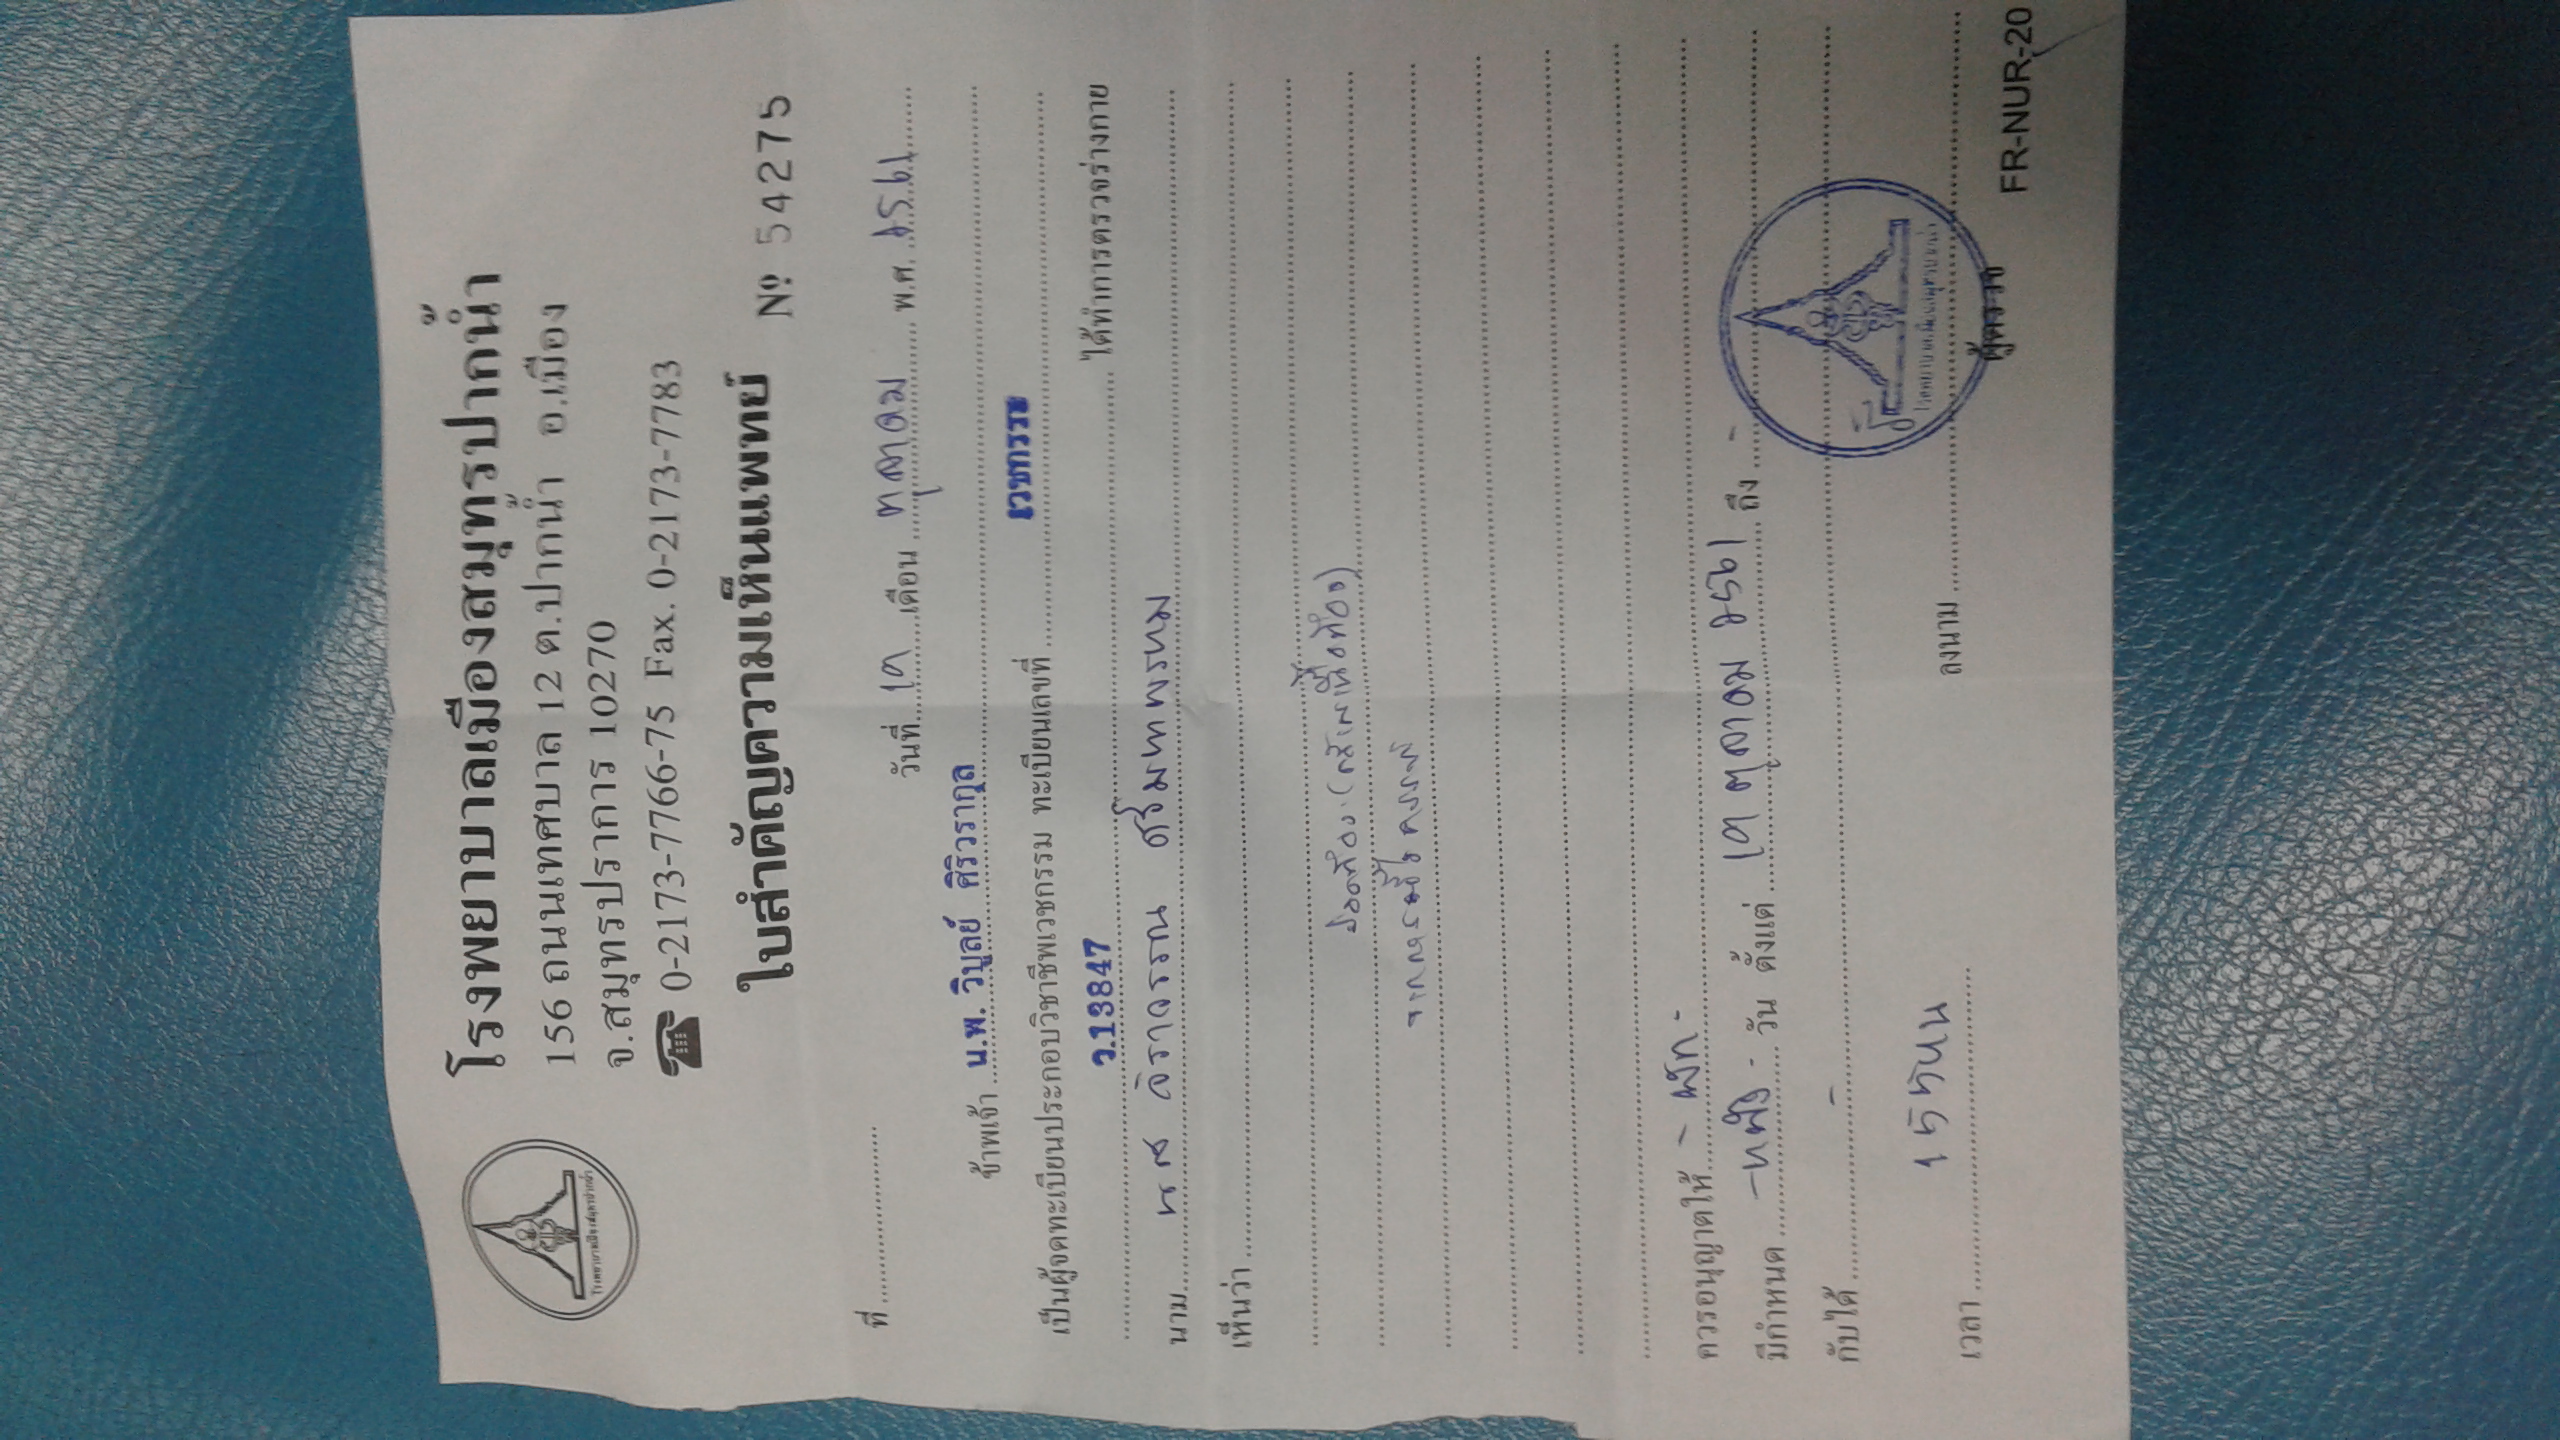 โรงพยาบาลเมืองสมุทรปากน้ำ
156 ถนนเทศบาล 12 ต.ปากน้ำ อ.เมือง
จ.สมุทรปราการ 10270
0-2173-7766-75 Fax. 0-2173-7783
โรงพยาบาลเมืองสมุทรปากน้ำ
ใบสำคัญความเห็นแพทย์ № 54275
ที่
วันที่ 19 เดือน ตุลาคม พ.ศ. 2561
ข้าพเจ้า น.พ. วิบูลย์ ศิริวรากุล
เป็นผู้จดทะเบียนประกอบวิชาชีพเวชกรรม ทะเบียนเลขที่ เวชกรรม
ว.13847 ได้ทำการตรวจร่างกาย
นาม นส จิราวรรณ ศรีมหาพรหม
เห็นว่า
ปวดท้อง (กล้ามเนื้อท้อง)
จากการตั้งครรภ์
ควรอนุญาตให้ - พัก -
มีกำหนด - หนึ่ง - วัน ตั้งแต่ 19 ตุลาคม 2561 ถึง -
กับได้ -
เวลา ลงนาม
โรงพยาบาลเมืองสมุทรปากน้ำ
ผู้ตรวจ
FR-NUR-20